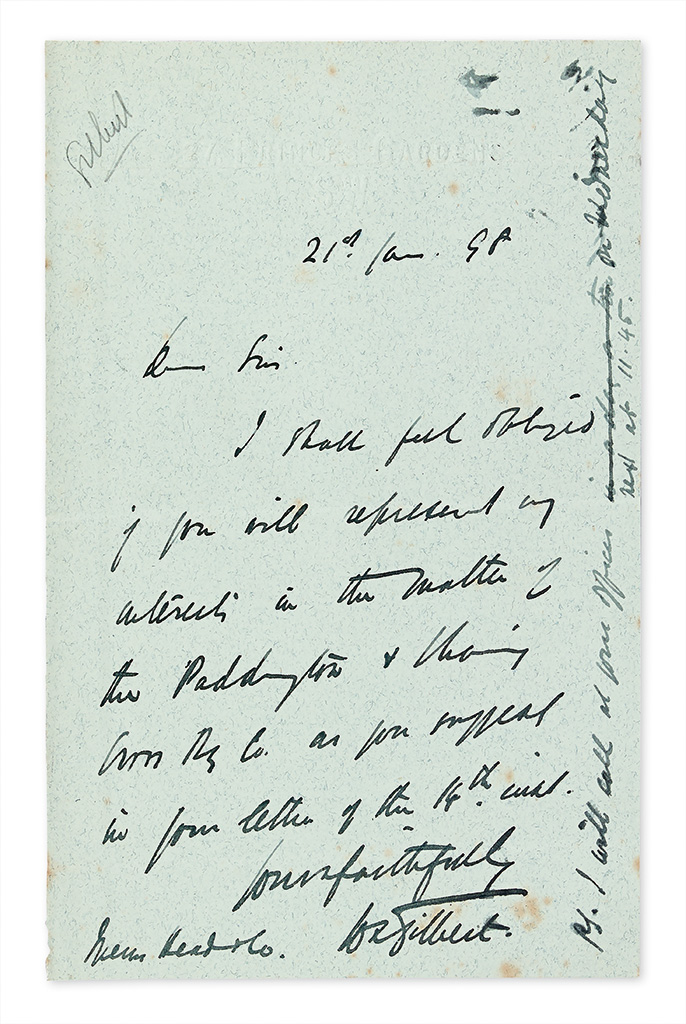 Gilbert
21st Jan. 98
Dear Sirs
I shall feel obliged
if you will represent my
interests in the matter of
the Paddington & Charing
Cross Ry Co. as you suggest
in your letter of the 14th inst.
Yours faithfully
WS Gilbert.
Messrs Head & Co.
PS. I will call at your offices on Wednesday
next at 11.45.